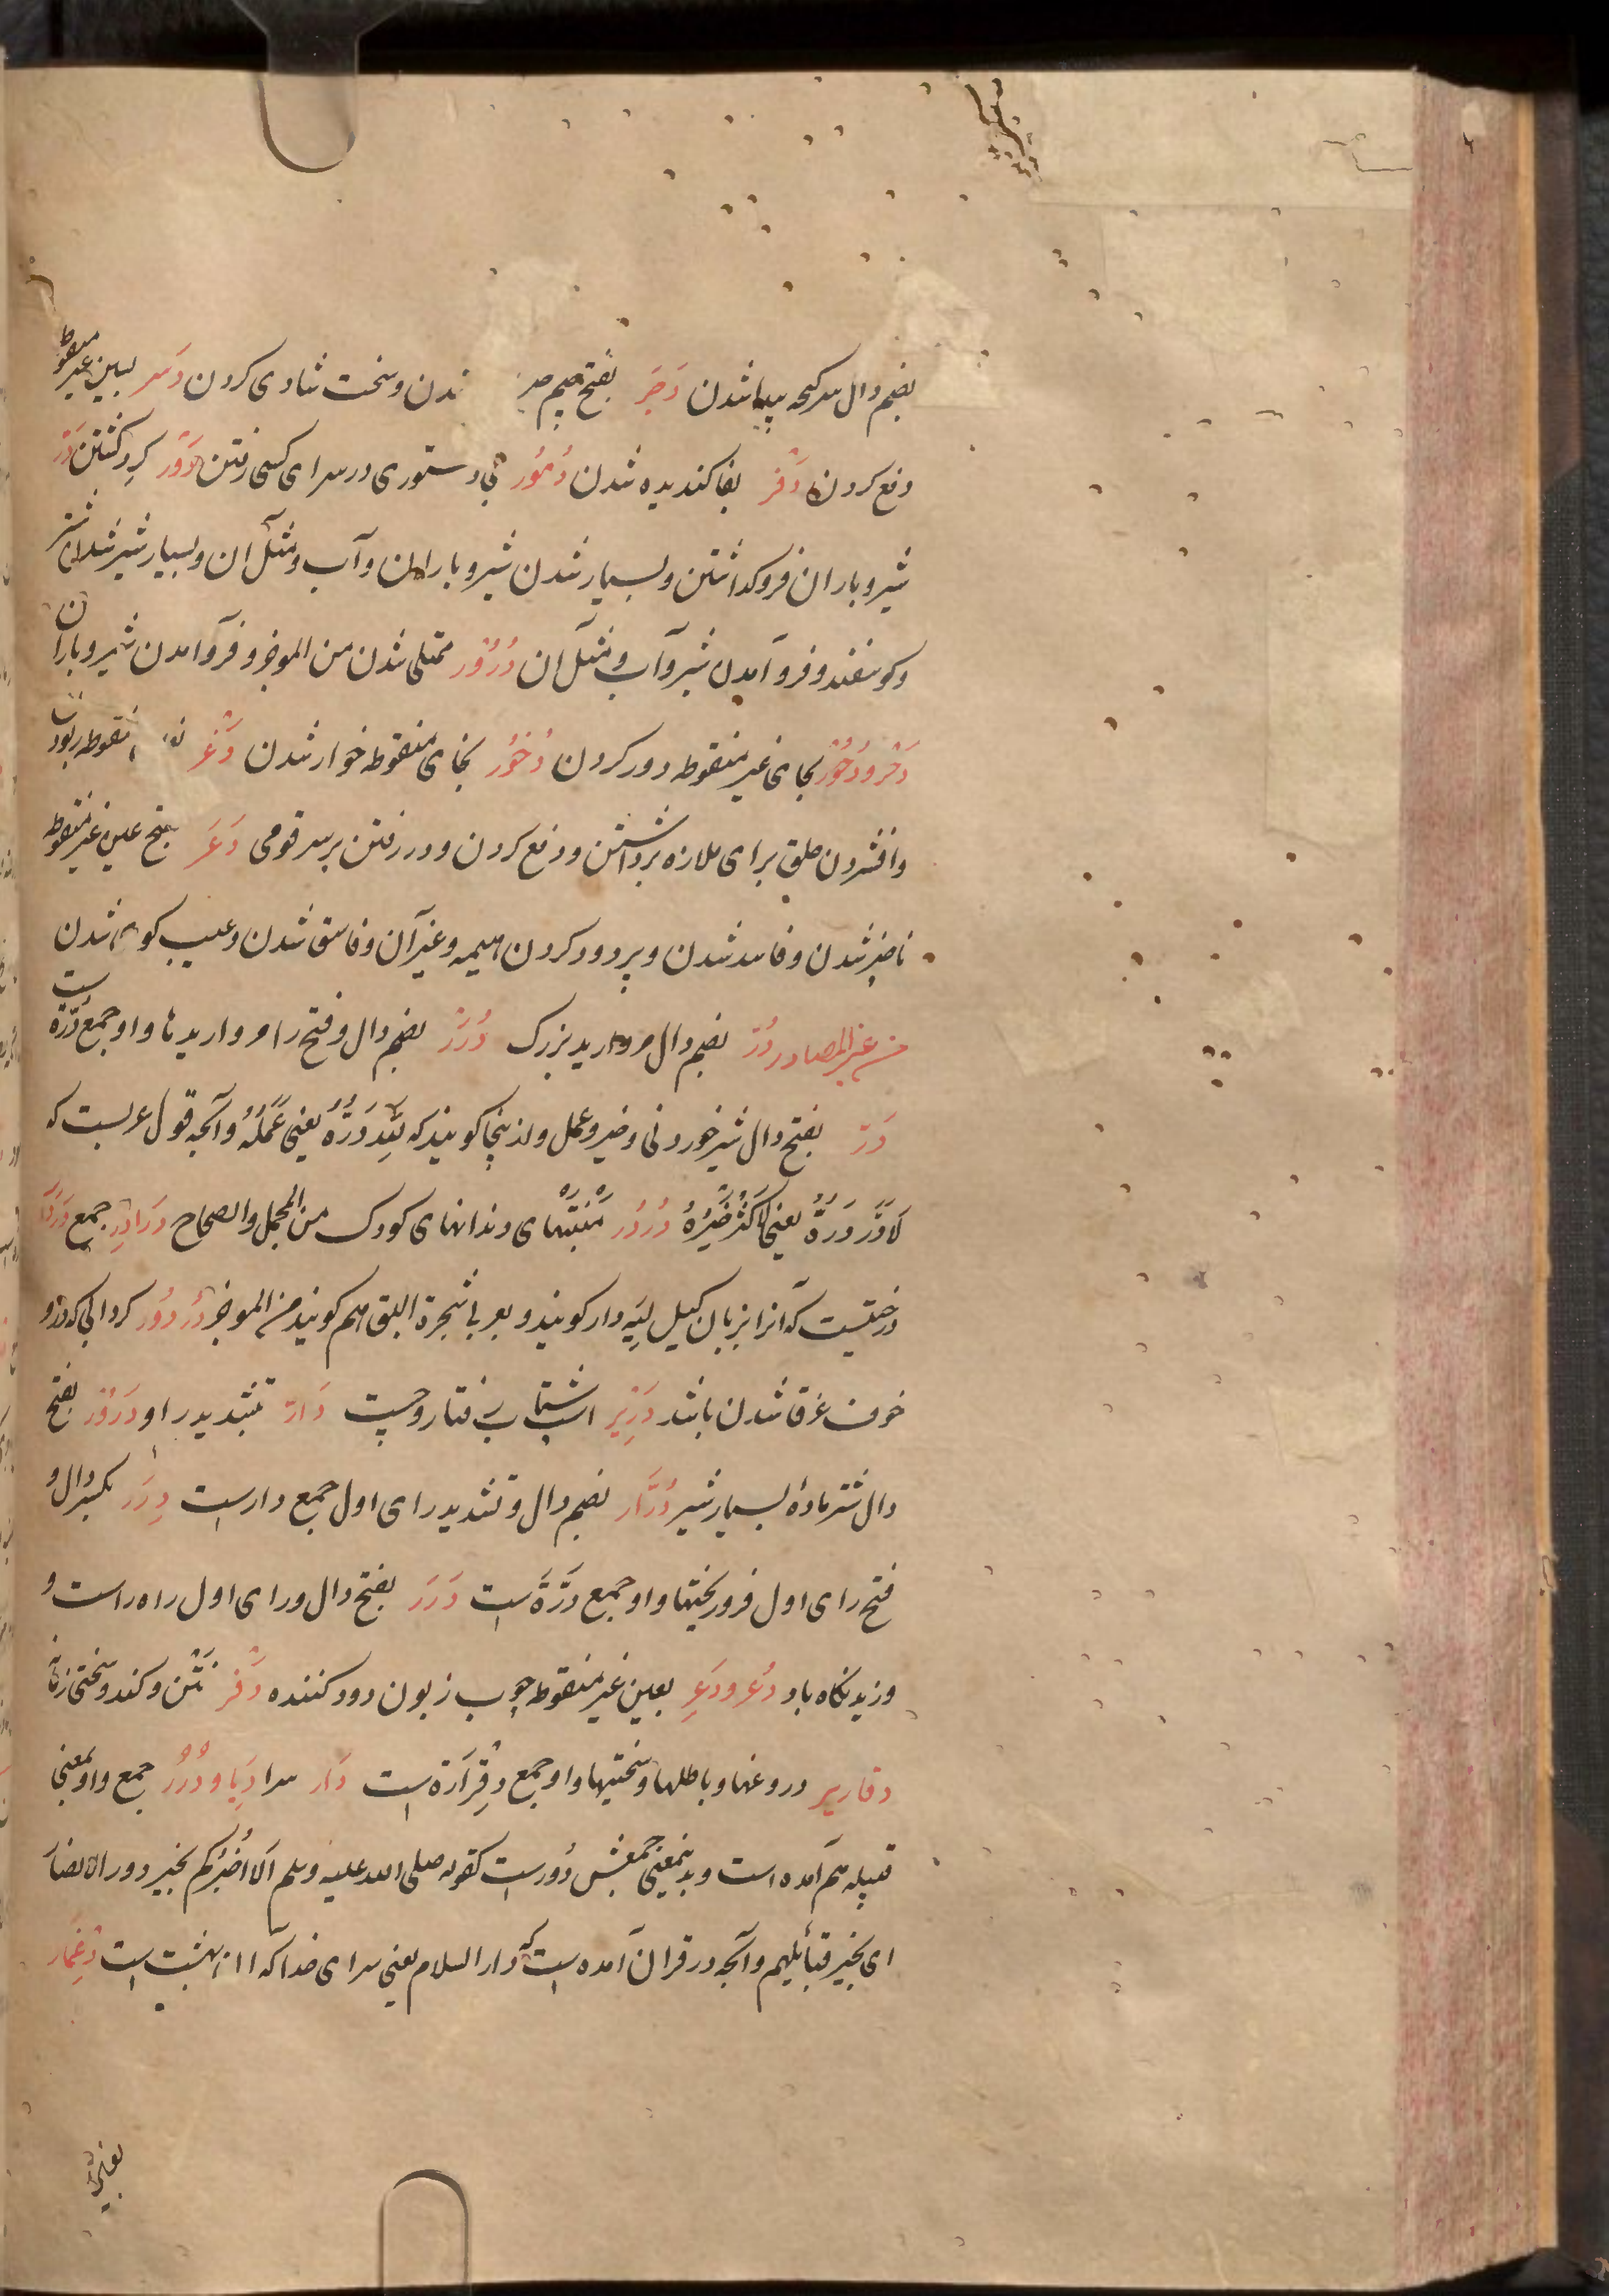 بضم دال سرکجه پیدا شدن دَجَر بفتح جیم شدن و سخت شادی کردن دَسر بسین غیر منقوط
دفع کردن دَفر بفا کندیده شدن دُمُور بی دستوری در سرای کسی رفتن دَوْر کرد کشتن دَرّ
شیر و باران فرو کذاشتن و بسیار شدن شیر و باران و آب و مثل آن و بسیار شیر شدن شتر
و کوسفند و فرو آمدن شیر و آب و مثل آن دُرُوْر ممتلی شدن من الموجز و فرو آمدن شیر و باران
دَحْر و دُحُوْر بحای غیر منقوطه دور کردن دُخُور بخای منقوطه خوار شدن دَغْر منقوطه ربودن
و افشردن حلق برای ملازه برداشتن و دفع کردن و در رفتن بر سر قومی دَعَر بفتح عین غیر منقوطه
ناچیز شدن و فاسد شدن و پر دود کردن هیمه و غیر آن و فاسق شدن و عیب کوی شدن
من غیر المصادر دُرّ بضم دال مروارید بزرک دُرَرْ بضم دال و فتح را مرواریدها و او جمع دُرّة ست
دَرّ بفتح دال شیر خوردنی و خیر و عمل و از ینجا کویند که لِلّٰهِ دَرُّهُ یعنی عَمَلُهُ و آنچه قول عربست که
لَا دَرَّ دَرُّهُ یعنی لَا كَثُرَ خَيْرُهُ دُرْدُر مَنْبَتهای دندانهای کودک من المجمل والصحاح دَرَادِر جمع دَرْدَار
درختیست که آنرا بزبان کیل لیه دار کویند و بعربی شجرة البق هم کویند من الموجز دُرْدُور کردابی که درو
خوف غرقا شدن باشد دَرِیْر اسب شتاب رفتار و چست دَارّ بتشدید را و دَرُوْر بفتح
دال شتر مادۀ بسیار شیر دُرَّار بضم دال و تشدید رای اول جمع دارست دِرَر بکسر دال و
فتح رای اول فرو ریختنها و او جمع دِرَّةَ است دَرَر بفتح دال و رای اول راه راست و
وزیدنکاه باد دُعَر و دَعِر بعین غیر منقوطه چوب زبون دود کننده دَفْر نَتْن و کند و سختی زمانه
دقاریر دروغها و باطلها و سختیها و او جمع دِقْرَارَة است دَار سرا دِیَار و دُوْر جمع و او بمعنی
قبیله هم آمده است و بدینمعنی جمعش دُورست کقوله صلی الله علیه و سلم اَلَا اُخْبِرُکُم بخیر دور الانصار
ای بخیر قبائلهم و آنچه در قرآن آمده است که دار السلام یعنی سرای خدا که آن بهشت است دِغْمَار